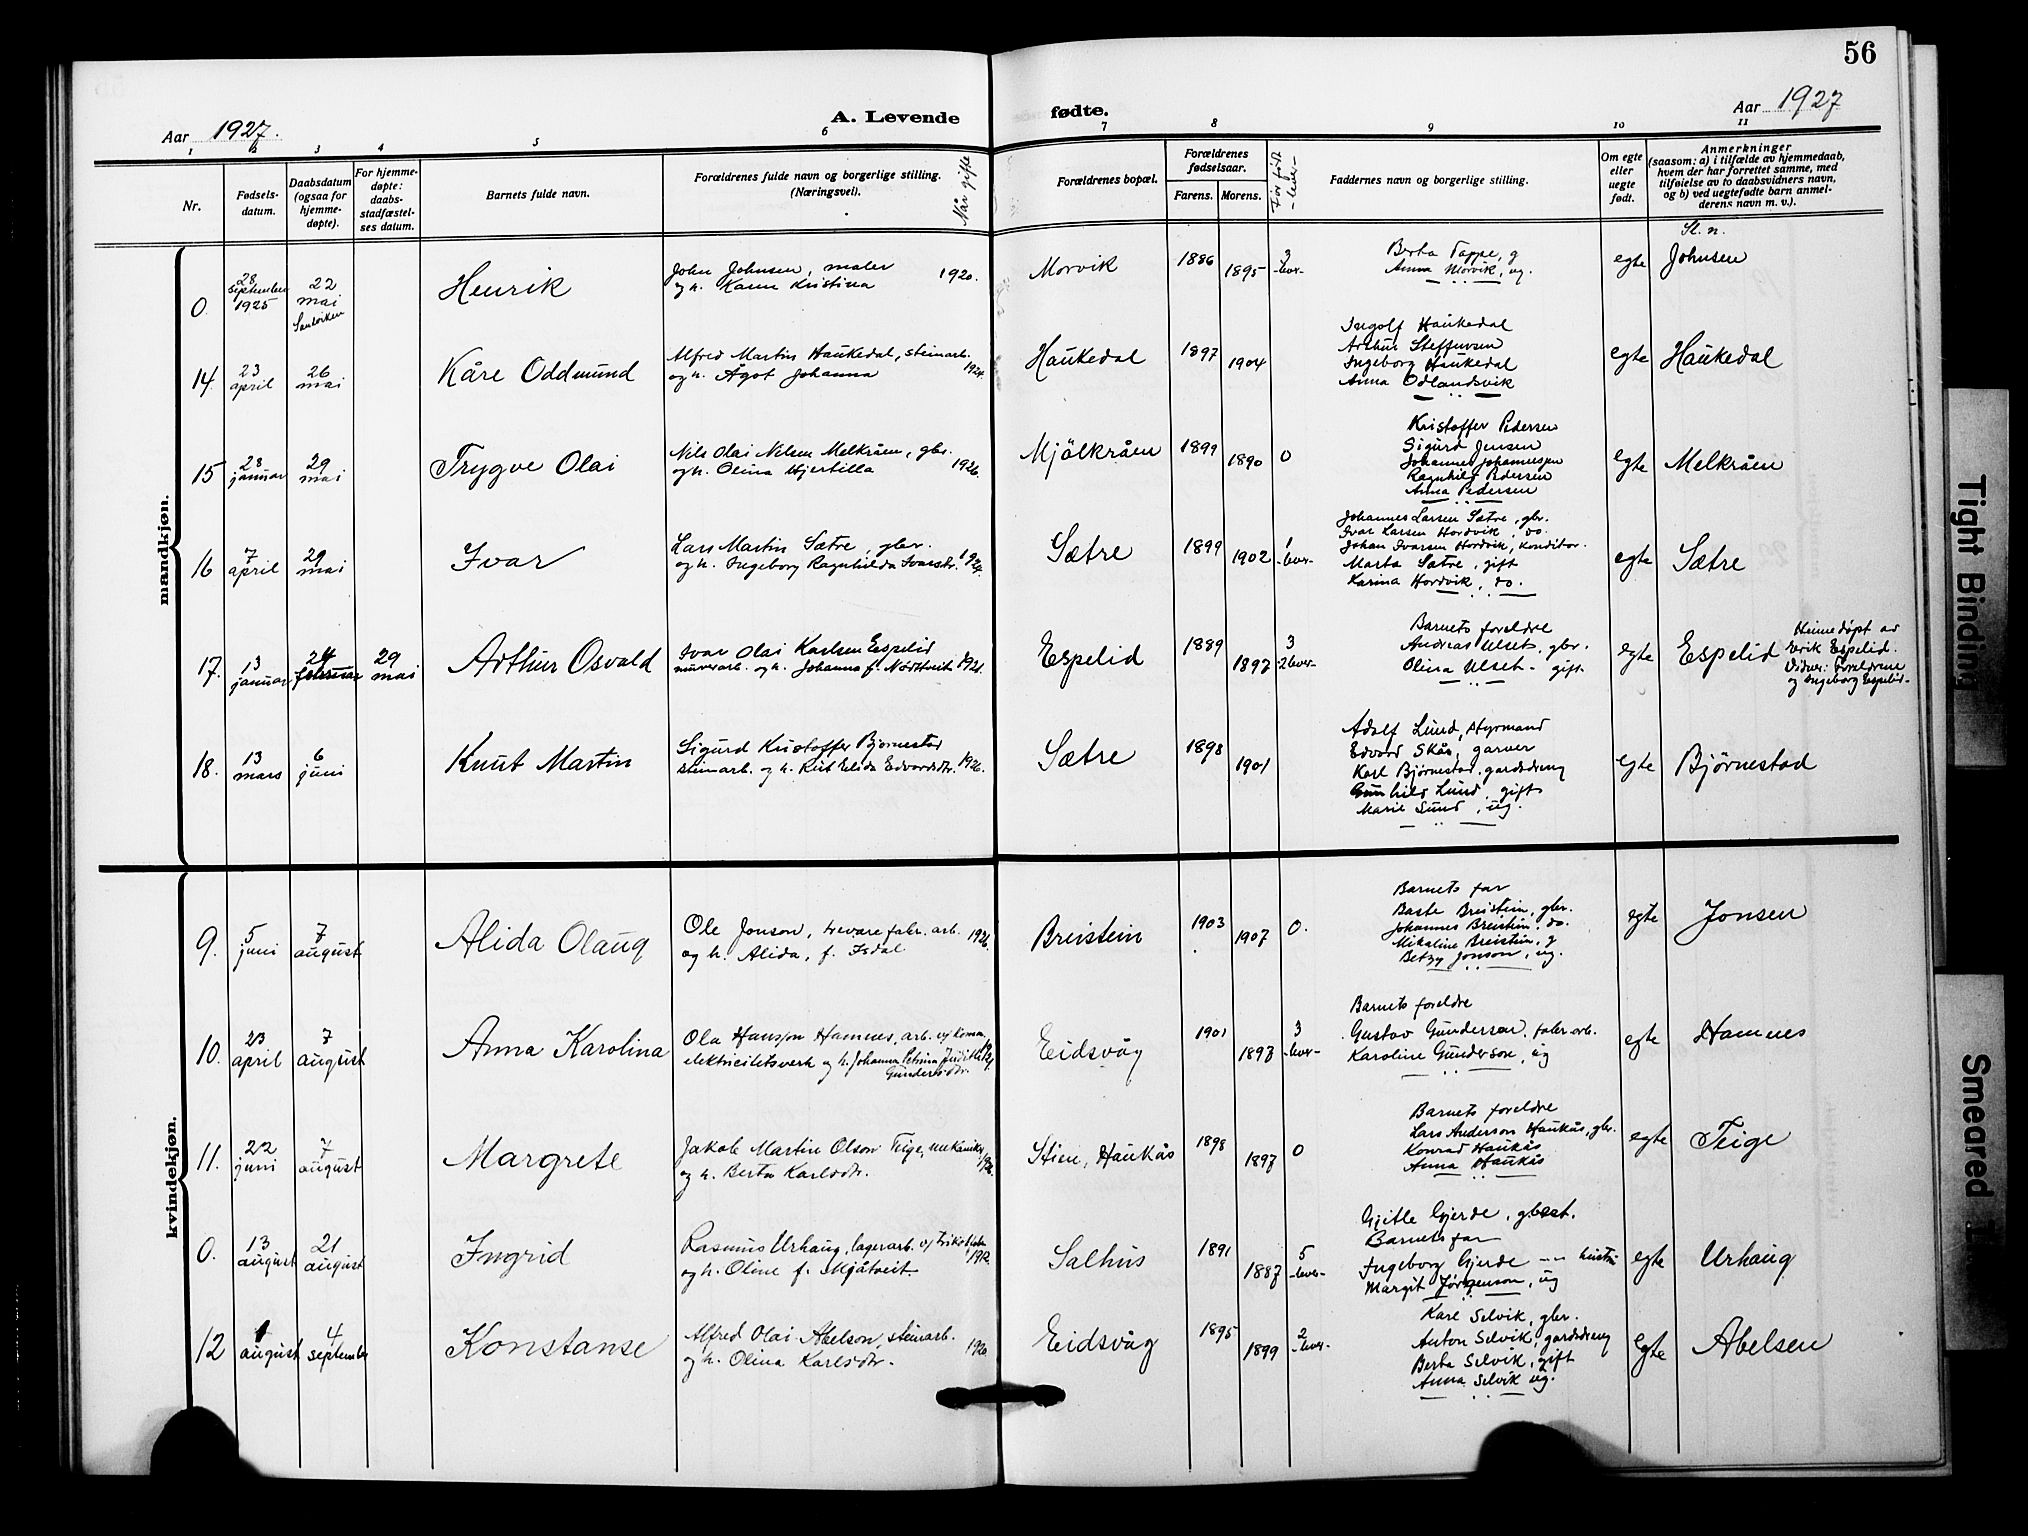 56
Aar 1927.
A. Levende
fødte.
Aar 1927
1 2 3 4 5 6 7 8 9 10 11
Nr.
Fødsels-
datum.
Daabsdatum
(ogsaa for
hjemme-
døpte).
For hjemme-
døpte:
daabs-
stadfæstel-
ses datum.
Barnets fulde navn.
Forældrenes fulde navn og borgerlige stilling.
(Næringsvei).
Når gifte
Forældrenes bopæl.
Forældrenes
fødselsaar.
Farens. Morens.
Før født
-lever-
Faddernes navn og borgerlige stilling.
Om egte
eller
uegte
født.
Anmerkninger
(saasom: a) i tilfælde av hjemmedaab,
hvem der har forrettet samme, med
tilføielse av to daabsvidners navn,
og b) ved uegtefødte barn anmel-
derens navn m. v.).
Sl. n.
mandkjøn.
0.
28
september
1925
22
mai
Sandviken
Henrik
John Johnsen, maler
og h. Karen Kristina
1920.
Morvik
1886
1895
3
-lever-
Berta Tappe, g
Anna Morvik, ug.
egte
Johnsen
14.
23
april
26
mai
Kåre Oddmund
Alfred Martin Haukedal, steinarb.
og h. Ågot Johanna
1924.
Haukedal
1897
1904
Ingolf Haukedal
Arthur Steffensen
Ingeborg Haukedal
Anna Odlandsvik
egte
Haukedal
15
28
januar
29
mai
Trygve Olai
Nils Olai Nilsen Melkråen, gbr.
og h. Olina Hjertilla
1926.
Mjölkråen
1899
1890
0
Kristoffer Pedersen
Sigurd Jensen
Johannes Johannessen
Ragnhild Pedersen
Anna Pedersen
egte
Melkråen
16
7
april
29
mai
Ivar
Lars Martin Sætre, gbr.
og h. Ingeborg Ragnhilda Ivarsdtr.
1924.
Sætre
1899
1902
1
-lever-
Johannes Larsen Sætre, gbr.
Ivar Larsen Hordvik, do.
Johan Ivarsen Hordvik, konditor.
Marta Sætre, gift
Karina Hordvik, do.
egte
Sætre
17.
13
januar
24
februar
29
mai
Arthur Osvald
Ivar Olai Karlsen Espelid
murerarb. og h. Johanna f. Nordtveit
1921.
Espelid
1889
1897
3
-2 lever-
Barnets foreldre
Andreas Ulset, gbr.
Olina Ulset - gift
egte
Espelid
Heimedøpt av
Eirik Espelid.
Vidner: Foreldrene
og Ingeborg Espelid-
18.
13
mars
6
juni
Knut Martin
Sigurd Kristoffer Bjørnestad
steinarb. og h. Rut Elida Edvardsdtr.
1926.
Sætre
1898
1901
Adolf Lund, styrmand
Edvard Skår, garver
Karl Bjørnestad, gardsdreng
Gunhild Lund, gift
Marie Lund, ug.
egte
Bjørnestad
kvindekjøn.
9.
5
juni
7
august
Alida Olaug
Ole Jonson, trevarefabr. arb.
og h. Alida, f. Isdal
1926.
Breistein
1903
1907
0.
Barnets far
Baste Breistein, gbr.
Johannes Breistein, do.
Mikaline Breistein, g
Betzy Jonson, ug.
egte
Jonsen
10.
23
april
7
august
Anna Karolina
Ola Hansson Hamnes, arb. v/ komm.
elektricitetsverk og h. Johanna Petrina
Gundersdtr.
Eidsvåg
1901
1897
3
-lever-
Barnets foreldre
Gustav Gunderson, fabr. arb.
Karoline Gunderson, ug
egte
Hamnes
11.
22
juni
7
august
Margrete
Jakob Martin Olson Teige, mekaniker
og h. Berta Karlsdtr.
Stien, Haukås
1898
1897
0
Barnets foreldre
Lars Anderson Haukås, gbr.
Konrad Haukås
Anna Haukås
egte
Teige
0.
13
august
21
august
Ingrid
Rasmus Urhaug, lagerarb. v/
og h. Oline f. Mjåtveit
1912.
Salhus
1891
1887
5
-lever-
Gjitle Gjerde,
Barnets far
Ingeborg Gjerde --- hustru
Margit Jørgenson, ug
egte
Urhaug
12
1
august
4
september
Konstanse
Alfred Olai Abelson, steinarb.
og h. Olina Karlsdtr.
1920
Eidsvåg
1895
1899
2
-lever-
Karl Selvik, gbr.
Anton Selvik, gardsdreng
Berta Selvik, gift
Anna Selvik ug.
egte
Abelsen
Tight Binding
Smeared